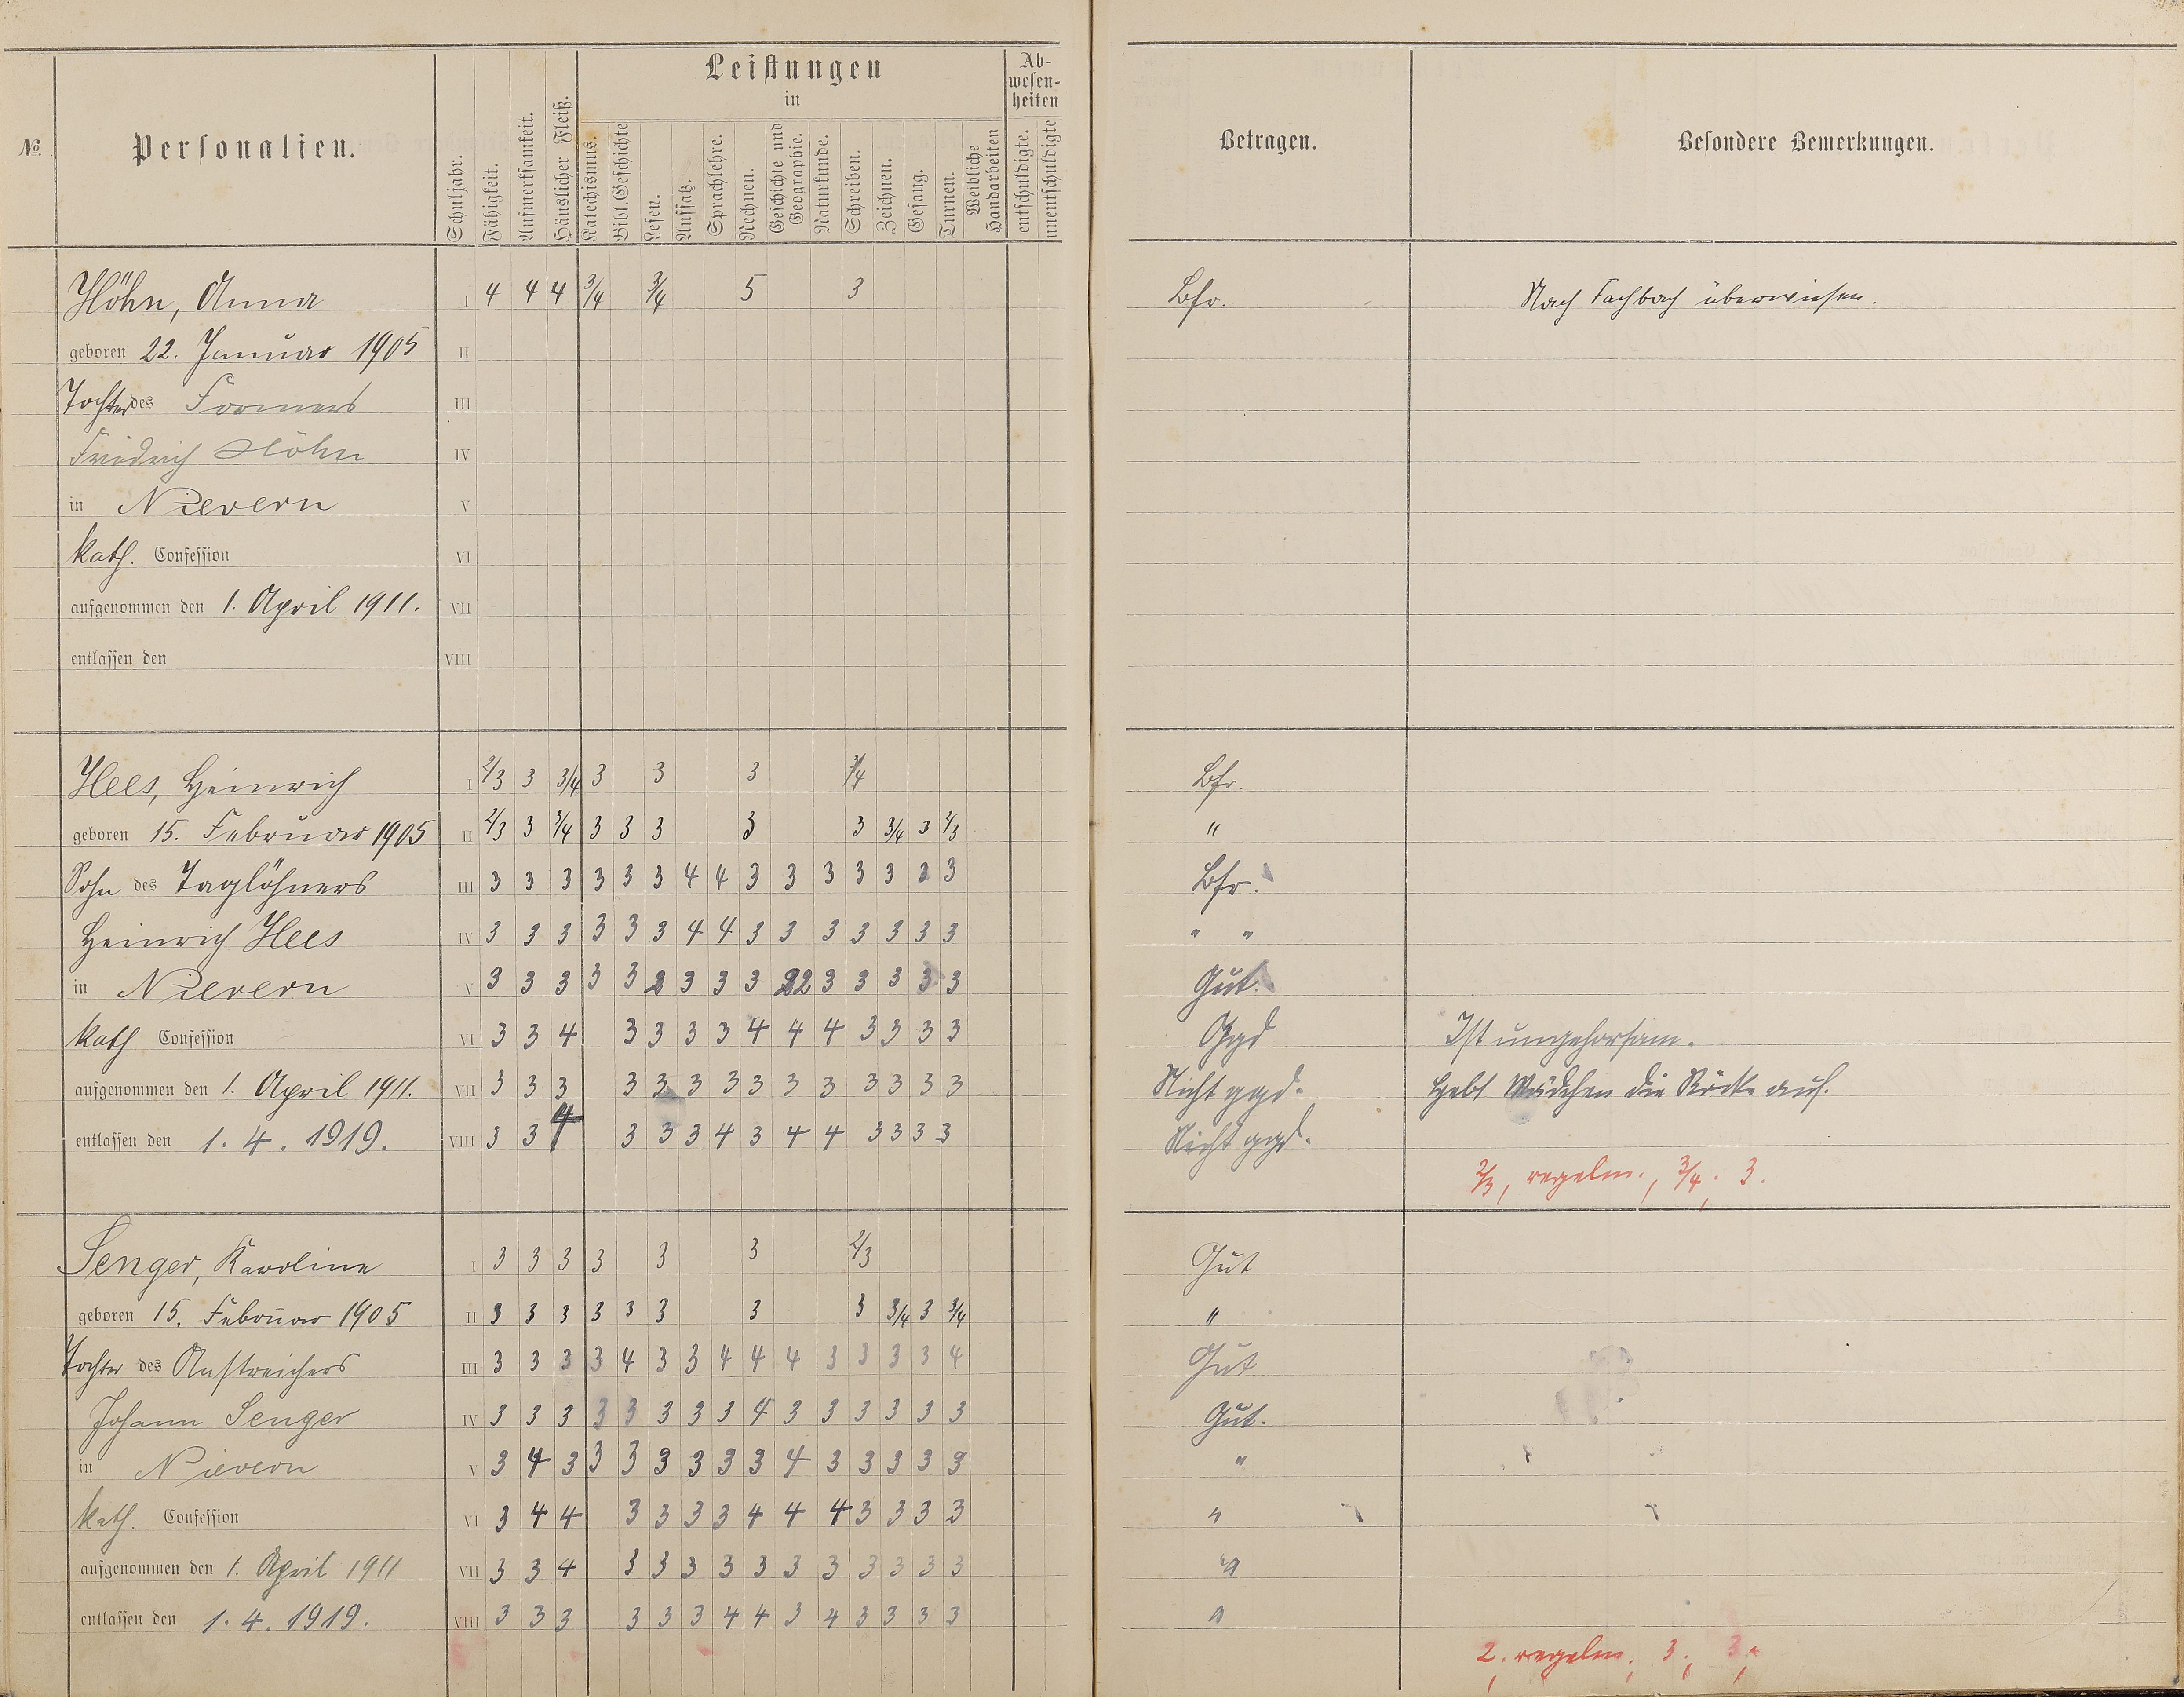 №
Personalien.
Schuljahr.
Fähigkeit.
Aufmerksamkeit.
Häuslicher Fleiß.
Leistungen
in
Katechismus.
Bibl. Geschichte
Lesen.
Aufsatz.
Sprachlehre.
Rechnen.
Geschichte und Geographie.
Naturkunde.
Schreiben.
Zeichnen.
Gesang.
Turnen.
Weibliche Handarbeiten
Ab-
wesen-
heiten
entschuldigte.
unentschuldigte
Betragen.
Besondere Bemerkungen.
Höhn, Anna I 4 4 4 3/4 3/4 5 3 Bfr. Nach Fachbach überwiesen.
geboren 22. Januar 1905 II
Tochter des Formers III
Friedrich Höhn IV
in Nievern V
kath. Confession VI
aufgenommen den 1. April 1911. VII
entlassen den VIII
Hees, Heinrich I 2/3 3 3/4 3 3 3 3/4 Bfr.
geboren 15. Februar 1905 II 2/3 3 3/4 3 3 3 3 3 3/4 3 2/3 "
Sohn des Taglöhners III 3 3 3 3 3 3 4 4 3 3 3 3 3 3 3 Bfr.
Heinrich Hees IV 3 3 3 3 3 3 4 4 3 3 3 3 3 3 3 " "
in Nievern V 3 3 3 3 3 3 3 3 3 2 3 3 3 3 3 Gut.
kath Confession VI 3 3 4 3 3 3 3 4 4 4 3 3 3 3 Ggd Ist ungehorsam.
aufgenommen den 1. April 1911. VII 3 3 3 3 3 3 3 3 3 3 3 3 3 3 Nicht ggd. Hebt Mädchen die Röcke auf.
entlassen den 1. 4. 1919. VIII 3 3 4 3 3 3 4 3 4 4 3 3 3 3 Nicht ggd.
2/3, regelm., 3/4; 3.
Senger, Karoline I 3 3 3 3 3 3 2/3 Gut
geboren 15. Februar 1905 II 3 3 3 3 3 3 3 3 3/4 3 3/4 "
Tochter des Anstreichers III 3 3 3 3 4 3 3 4 4 4 3 3 3 3 4 Gut
Johann Senger IV 3 3 3 3 3 3 3 3 4 3 3 3 3 3 3 Gut.
in Nievern V 3 4 3 3 3 3 3 3 3 4 3 3 3 3 3 "
kath. Confession VI 3 4 4 3 3 3 3 4 4 4 3 3 3 3 "
aufgenommen den 1. April 1911 VII 3 3 4 3 3 3 3 3 3 3 3 3 3 3 "
entlassen den 1. 4. 1919. VIII 3 3 3 3 3 3 4 4 3 4 3 3 3 3 "
2, regelm., 3, 3.